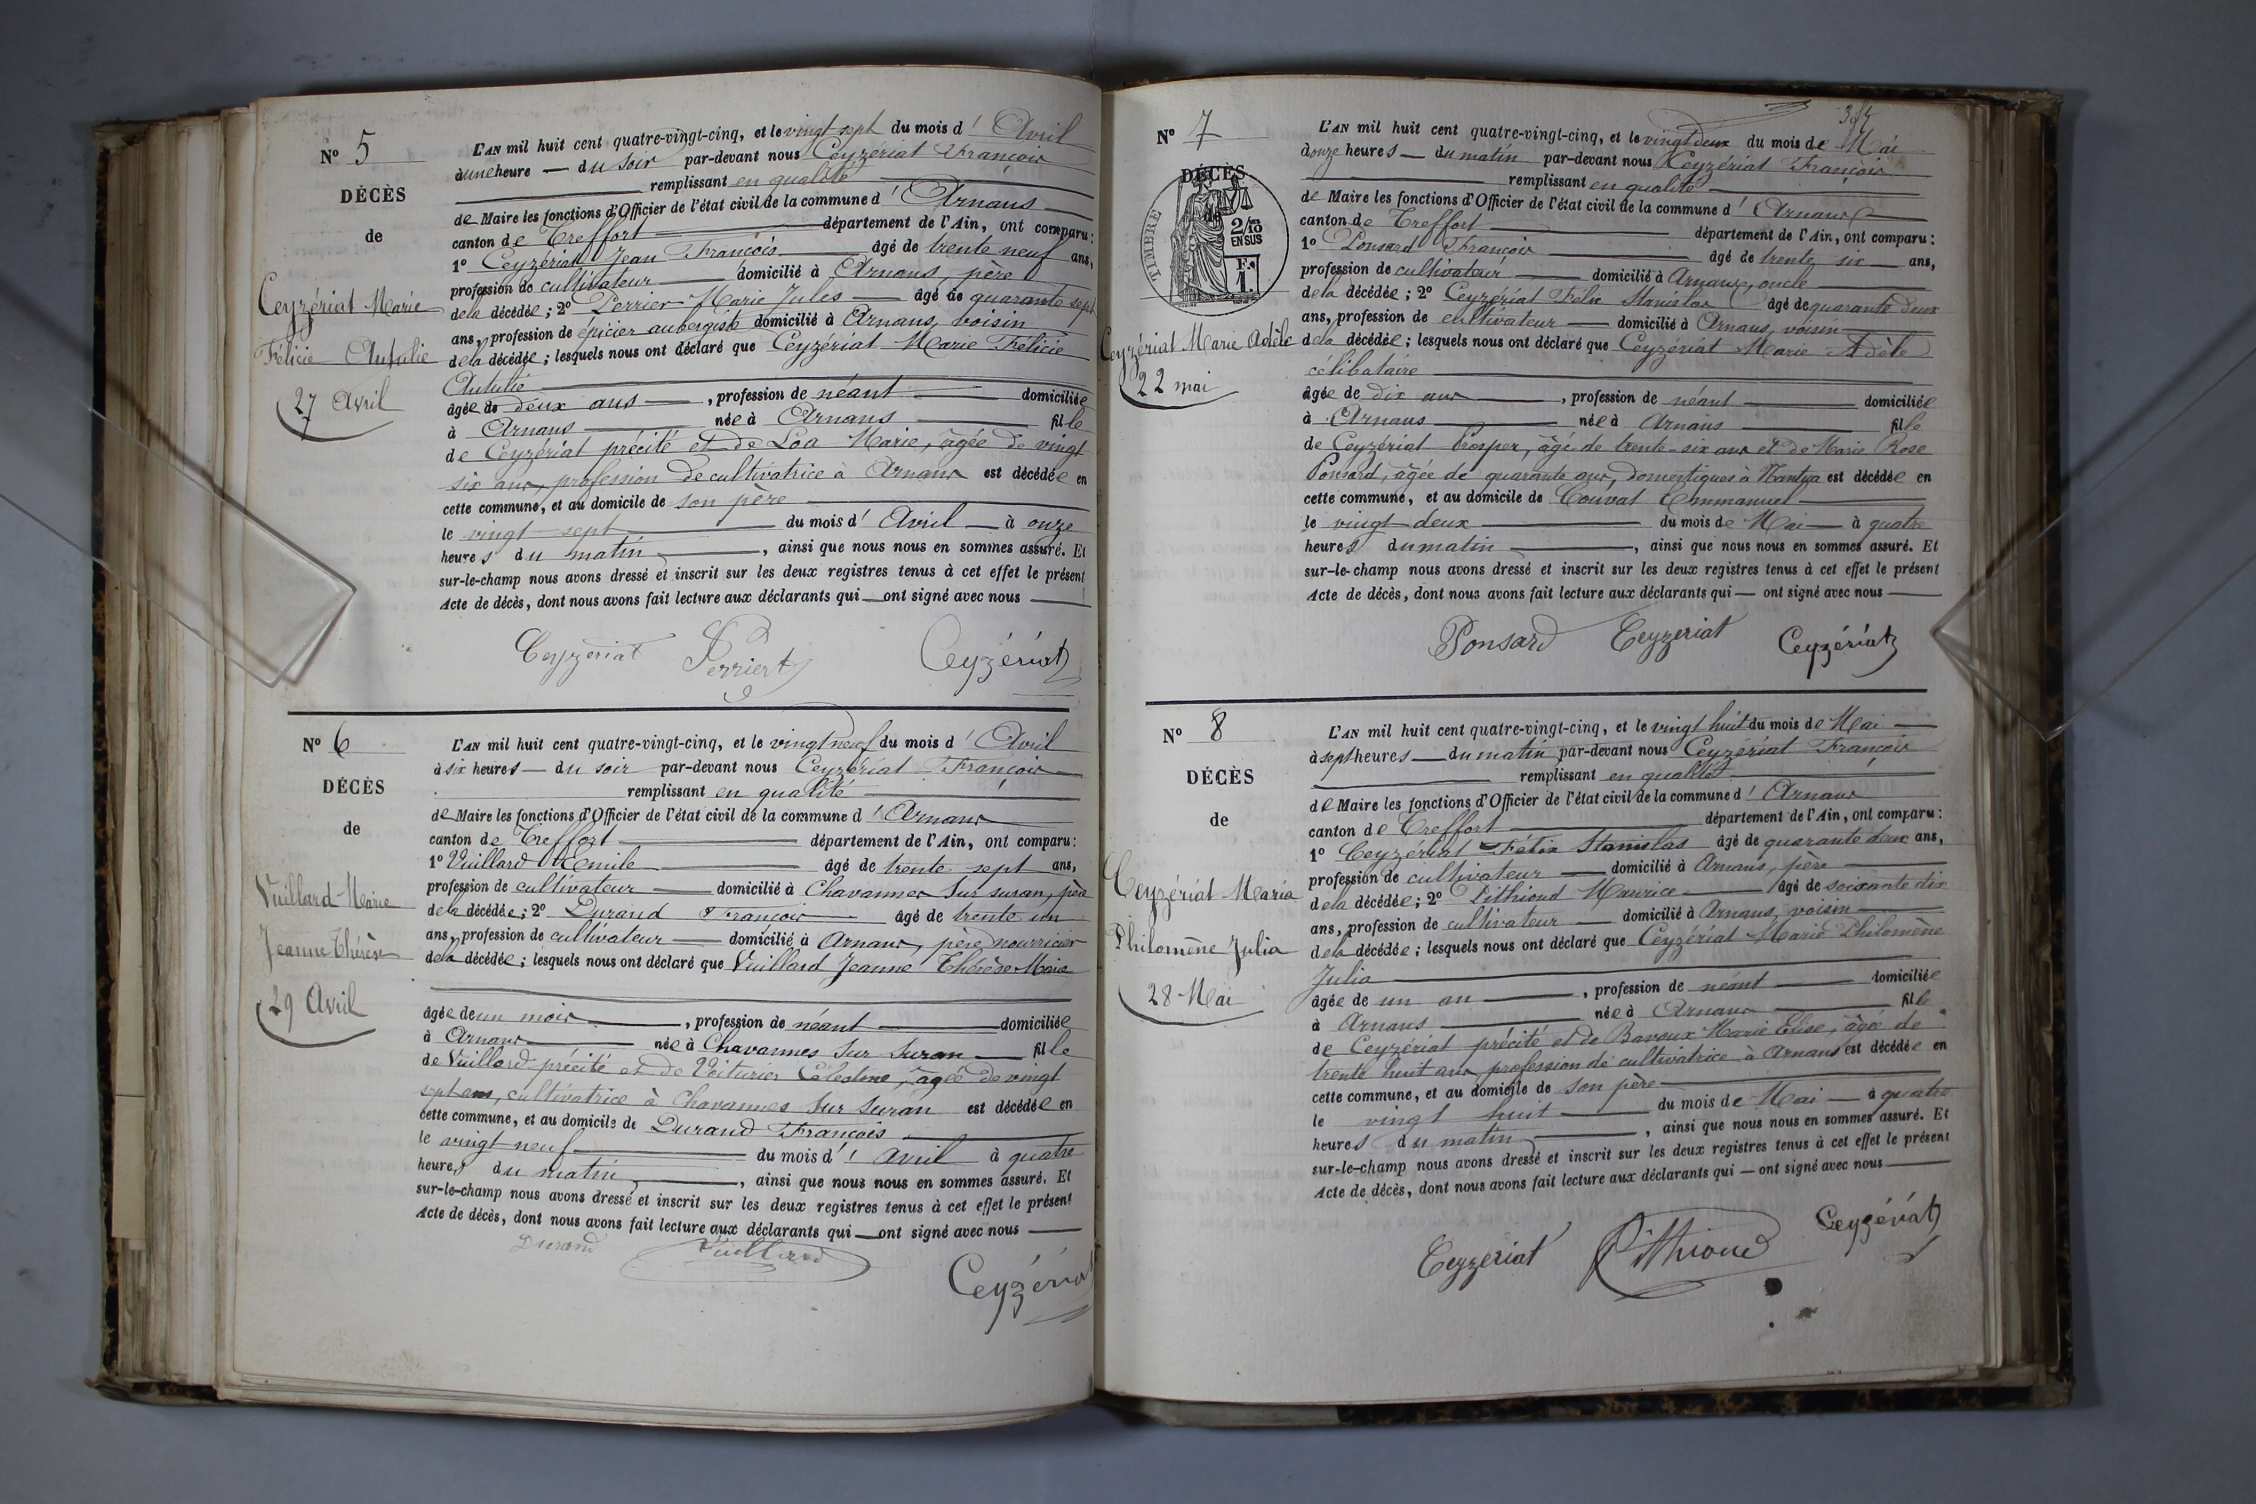 Nº 5
DÉCÈS
de
Ceyzériat Marie
Félicie
27 Avril
L'AN mil huit cent quatre-vingt-cinq, et le vingt sept du mois d' Avril
à une heure — du soir par-devant nous Ceyzériat François
remplissant en qualité
de Maire les fonctions d'Officier de l'état civil de la commune d' Arnans
canton de Treffort département de l'Ain, ont comparu:
1º Ceyzériat Jean François âgé de trente neuf ans,
profession de cultivateur domicilié à Arnans, père
de la décédée; 2º Perrier Marie Jules âgé de quarante sept
ans, profession de épicier aubergiste domicilié à Arnans, voisin
de la décédée; lesquels nous ont déclaré que Ceyzériat Marie Félicie
âgée de deux ans, profession de néant domiciliée
à Arnans née à Arnans fille
de Ceyzériat précité et de Marie, âgée de vingt
six ans, profession de cultivatrice à Arnans est décédée en
cette commune, et au domicile de son père
le vingt sept du mois d' Avril à onze
heures du matin, ainsi que nous nous en sommes assuré. Et
sur-le-champ nous avons dressé et inscrit sur les deux registres tenus à cet effet le présent
Acte de décès, dont nous avons fait lecture aux déclarants qui — ont signé avec nous
Ceyzériat Perrier Ceyzériat
Nº 6
DÉCÈS
de
Vuillard Marie
Jeanne Thérèse
29 Avril
L'AN mil huit cent quatre-vingt-cinq, et le vingt neuf du mois d' Avril
à six heures — du soir par-devant nous Ceyzériat François
remplissant en qualité
de Maire les fonctions d'Officier de l'état civil de la commune d' Arnans
canton de Treffort département de l'Ain, ont comparu:
1º Vuillard Emile âgé de trente sept ans,
profession de cultivateur domicilié à Chavannes sur suran, père
de la décédée; 2º Durand François âgé de trente un
ans, profession de cultivateur domicilié à Arnans, père nourricier
de la décédée; lesquels nous ont déclaré que Vuillard Jeanne Thérèse Marie
âgée de un mois, profession de néant domiciliée
à Arnans née à Chavannes sur Suran fille
de Vuillard précité et de Voiturier Célestine, âgée de vingt
sept ans, cultivatrice à Chavannes sur Suran est décédée en
cette commune, et au domicile de Durand François
le vingt neuf du mois d' avril à quatre
heures du matin, ainsi que nous nous en sommes assuré. Et
sur-le-champ nous avons dressé et inscrit sur les deux registres tenus à cet effet le présent
Acte de décès, dont nous avons fait lecture aux déclarants qui — ont signé avec nous
Durand Vuillard
Ceyzériat
Nº 7
DÉCÈS
de
TIMBRE
2/10 EN SUS
F. 1.
Ceyzériat Marie Adèle
22 mai
L'AN mil huit cent quatre-vingt-cinq, et le vingt deux du mois de Mai
douze heures — du matin par-devant nous Ceyzériat François
remplissant en qualité
de Maire les fonctions d'Officier de l'état civil de la commune d' Arnans
canton de Treffort département de l'Ain, ont comparu:
1º Ponsard François âgé de trente six ans,
profession de cultivateur domicilié à Arnans, oncle
de la décédée; 2º Ceyzériat Félix Stanislas âgé de quarante deux
ans, profession de cultivateur domicilié à Arnans, voisin
de la décédée; lesquels nous ont déclaré que Ceyzériat Marie Adèle
célibataire
âgée de dix ans, profession de néant domiciliée
à Arnans née à Arnans fille
de Ceyzériat Prosper, âgé de trente-six ans et de Marie Rose
Ponsard, âgée de quarante ans, domestiques à Nantua est décédée en
cette commune, et au domicile de Couvat Emmanuel
le vingt deux du mois de Mai à quatre
heures du matin, ainsi que nous nous en sommes assuré. Et
sur-le-champ nous avons dressé et inscrit sur les deux registres tenus à cet effet le présent
Acte de décès, dont nous avons fait lecture aux déclarants qui — ont signé avec nous
Ponsard Ceyzeriat Ceyzériat
Nº 8
DÉCÈS
de
Ceyzériat Maria
Philomène Julia
28 Mai
L'AN mil huit cent quatre-vingt-cinq, et le vingt huit du mois de Mai
à sept heures — du matin par-devant nous Ceyzériat François
remplissant en qualité
de Maire les fonctions d'Officier de l'état civil de la commune d' Arnans
canton de Treffort département de l'Ain, ont comparu:
1º Ceyzériat Félix Stanislas âgé de quarante deux ans,
profession de cultivateur domicilié à Arnans, père
de la décédée; 2º Pithioud Maurice âgé de soixante dix
ans, profession de cultivateur domicilié à Arnans, voisin
de la décédée; lesquels nous ont déclaré que Ceyzériat Marie Philomène
Julia
âgée de un an, profession de néant domiciliée
à Arnans née à Arnans fille
de Ceyzériat précité et de Bavoux Marie Elise, âgée de
trente huit ans, profession de cultivatrice à Arnans est décédée en
cette commune, et au domicile de son père
le vingt huit du mois de Mai à quatre
heures du matin, ainsi que nous nous en sommes assuré. Et
sur-le-champ nous avons dressé et inscrit sur les deux registres tenus à cet effet le présent
Acte de décès, dont nous avons fait lecture aux déclarants qui — ont signé avec nous
Ceyzeriat Pithioud Ceyzériat